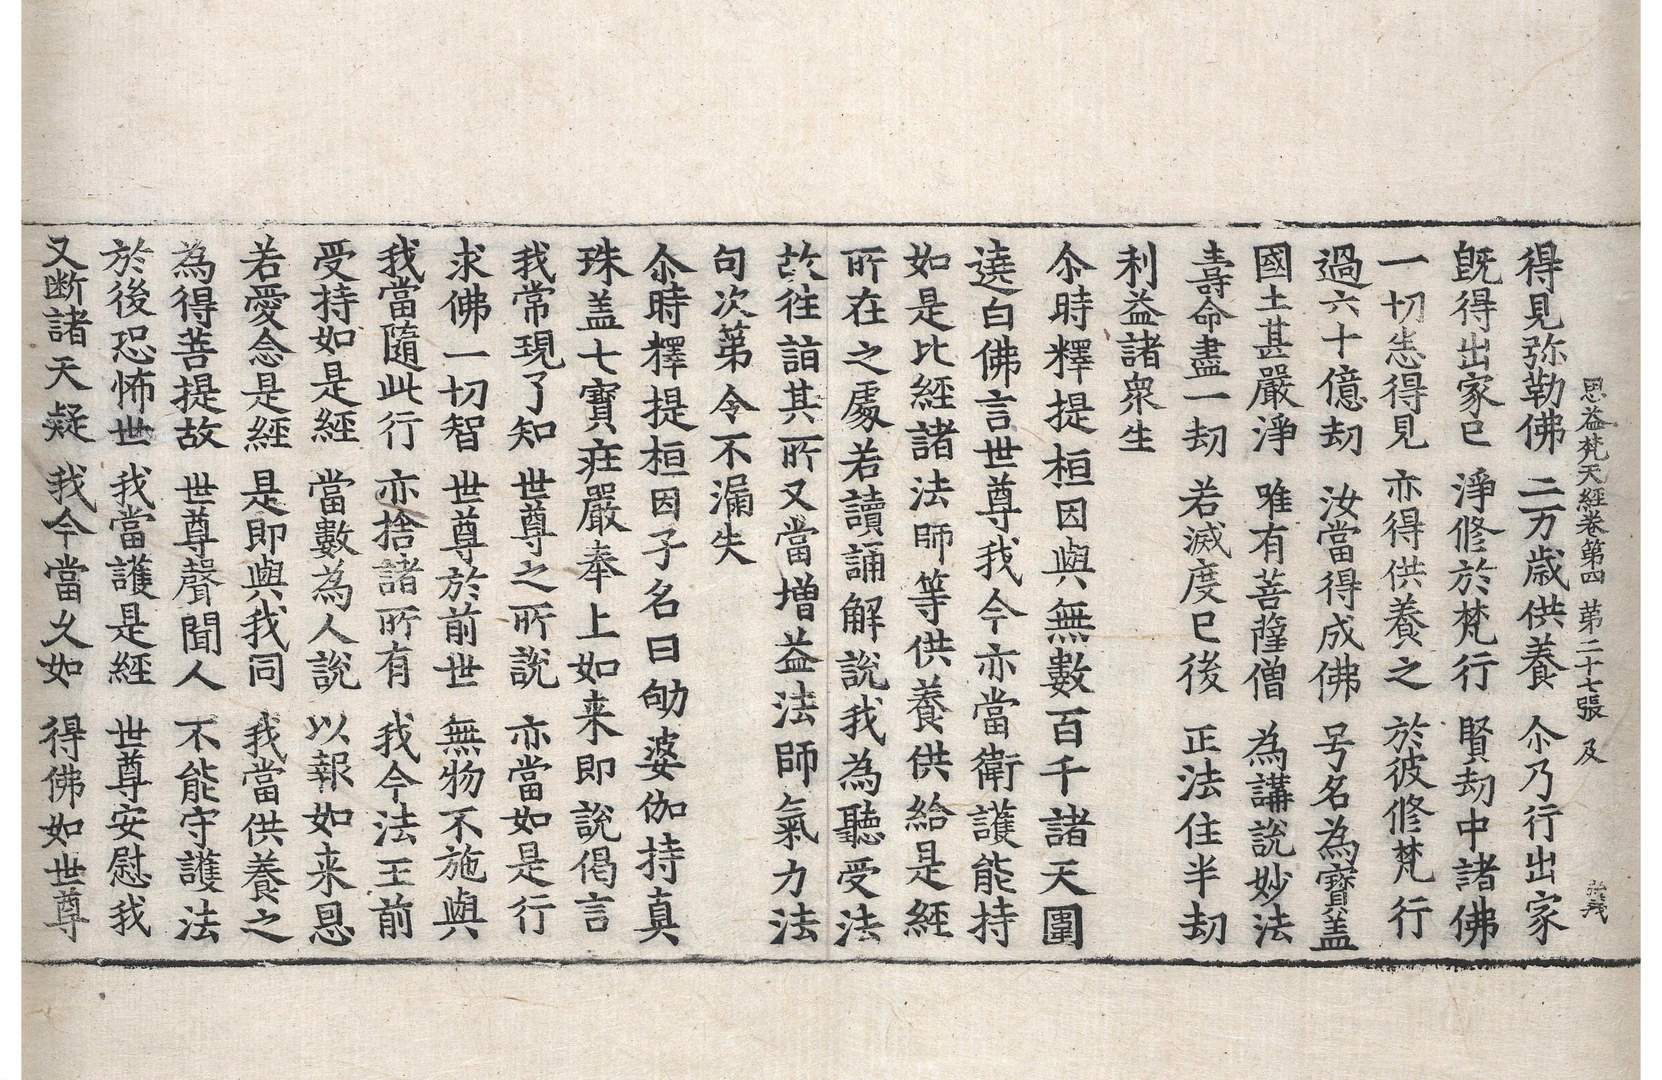 思益梵天經卷第四 第二十七張 及
得見弥勒佛 二万歲供養 尒乃行出家
旣得出家已 淨修於梵行 賢劫中諸佛
一切悉得見 亦得供養之 於彼修梵行
過六十億劫 汝當得成佛 号名為寶盖
國土甚嚴淨 唯有菩薩僧 為講說妙法
壽命盡一劫 若滅度已後 正法住半劫
利益諸衆生
尒時釋提桓因與無數百千諸天圍
遶白佛言世尊我今亦當衛護能持
如是比經諸法師等供養供給是經
所在之處若讀誦解說我為聽受法
故往詣其所又當增益法師氣力法
句次第令不漏失
尒時釋提桓因子名曰劬婆伽持真
珠盖七寶莊嚴奉上如来即說偈言
我常現了知 世尊之所說 亦當如是行
求佛一切智 世尊於前世 無物不施與
我當隨此行 亦捨諸所有 我今法王前
受持如是經 當數為人說 以報如来恩
若愛念是經 是即與我同 我當供養之
為得菩提故 世尊聲聞人 不能守護法
於後恐怖世 我當護是經 世尊安慰我
又斷諸天疑 我今當久如 得佛如世尊